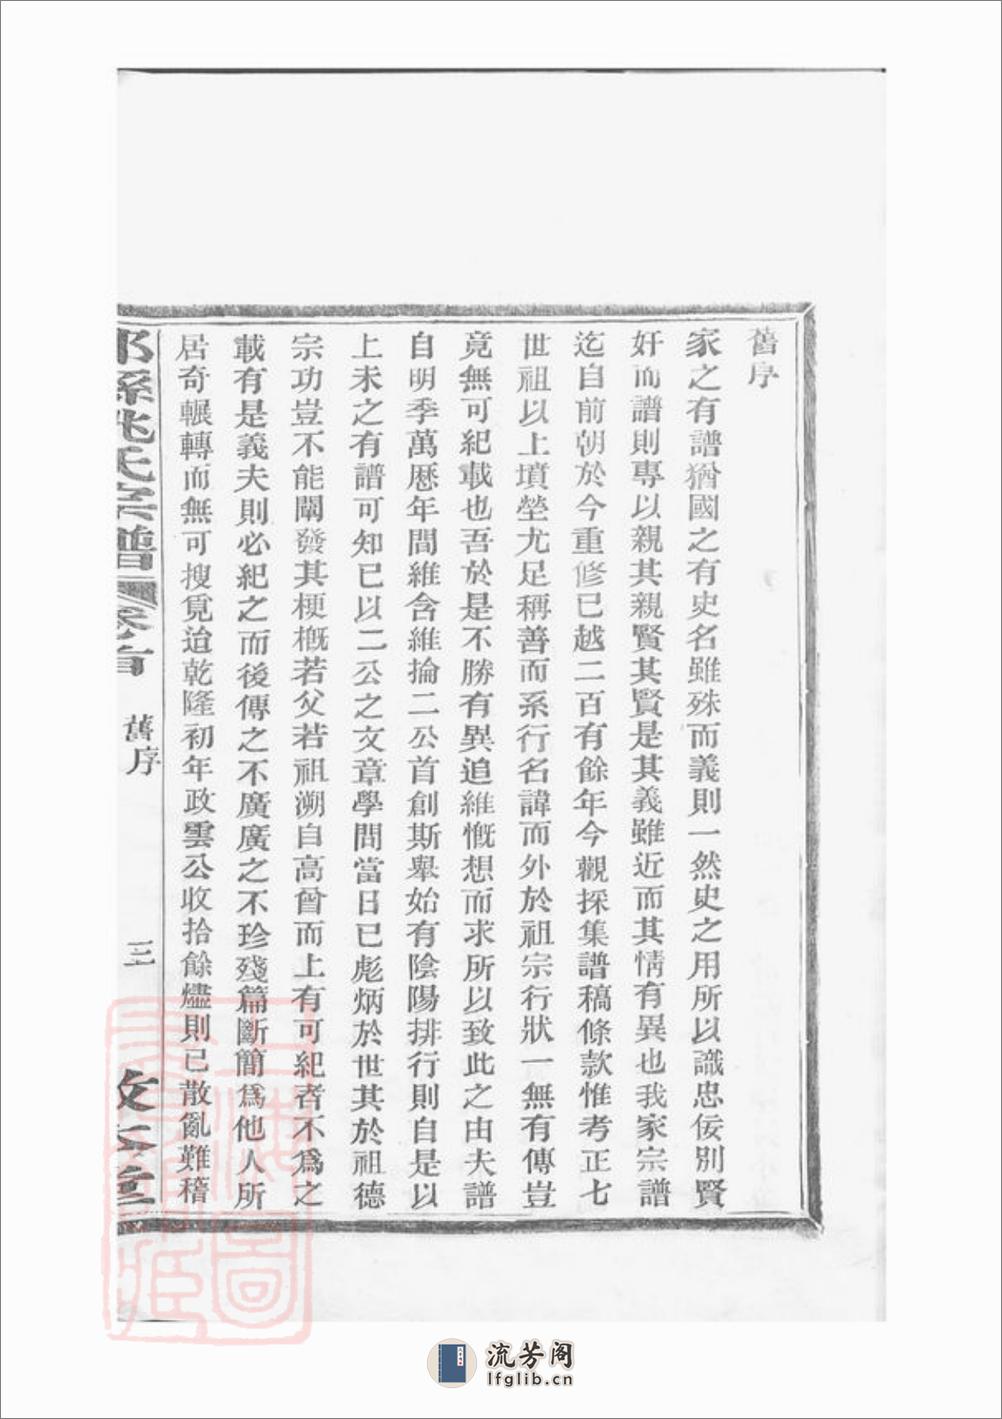 舊序
家之有譜猶國之有史名雖殊而義則一然史之用所以識忠佞別賢
奸而譜則專以親其親賢其賢是其義雖近而其情有異也我家宗譜
迄自前朝於今重修已越二百有餘年今觀採集譜稿條款惟考正七
世祖以上墳塋尤足稱善而系行名諱而外於祖宗行狀一無有傳豈
竟無可紀載也吾於是不勝有異追維慨想而求所以致此之由夫譜
自明季萬歷年間維含維掄二公首創斯舉始有陰陽排行則自是以
上未之有譜可知已以二公之文章學問當日已彪炳於世其於祖德
宗功豈不能闡發其梗概若父若祖溯自高曾而上有可紀者不爲之
載有是義夫則必紀之而後傳之不廣廣之不珍殘篇斷簡爲他人所
居奇輾轉而無可搜覓迨乾隆初年政雲公收拾餘燼則已散亂難稽
姚氏宗譜 卷首 舊序 三
流芳阁
lfglib.cn